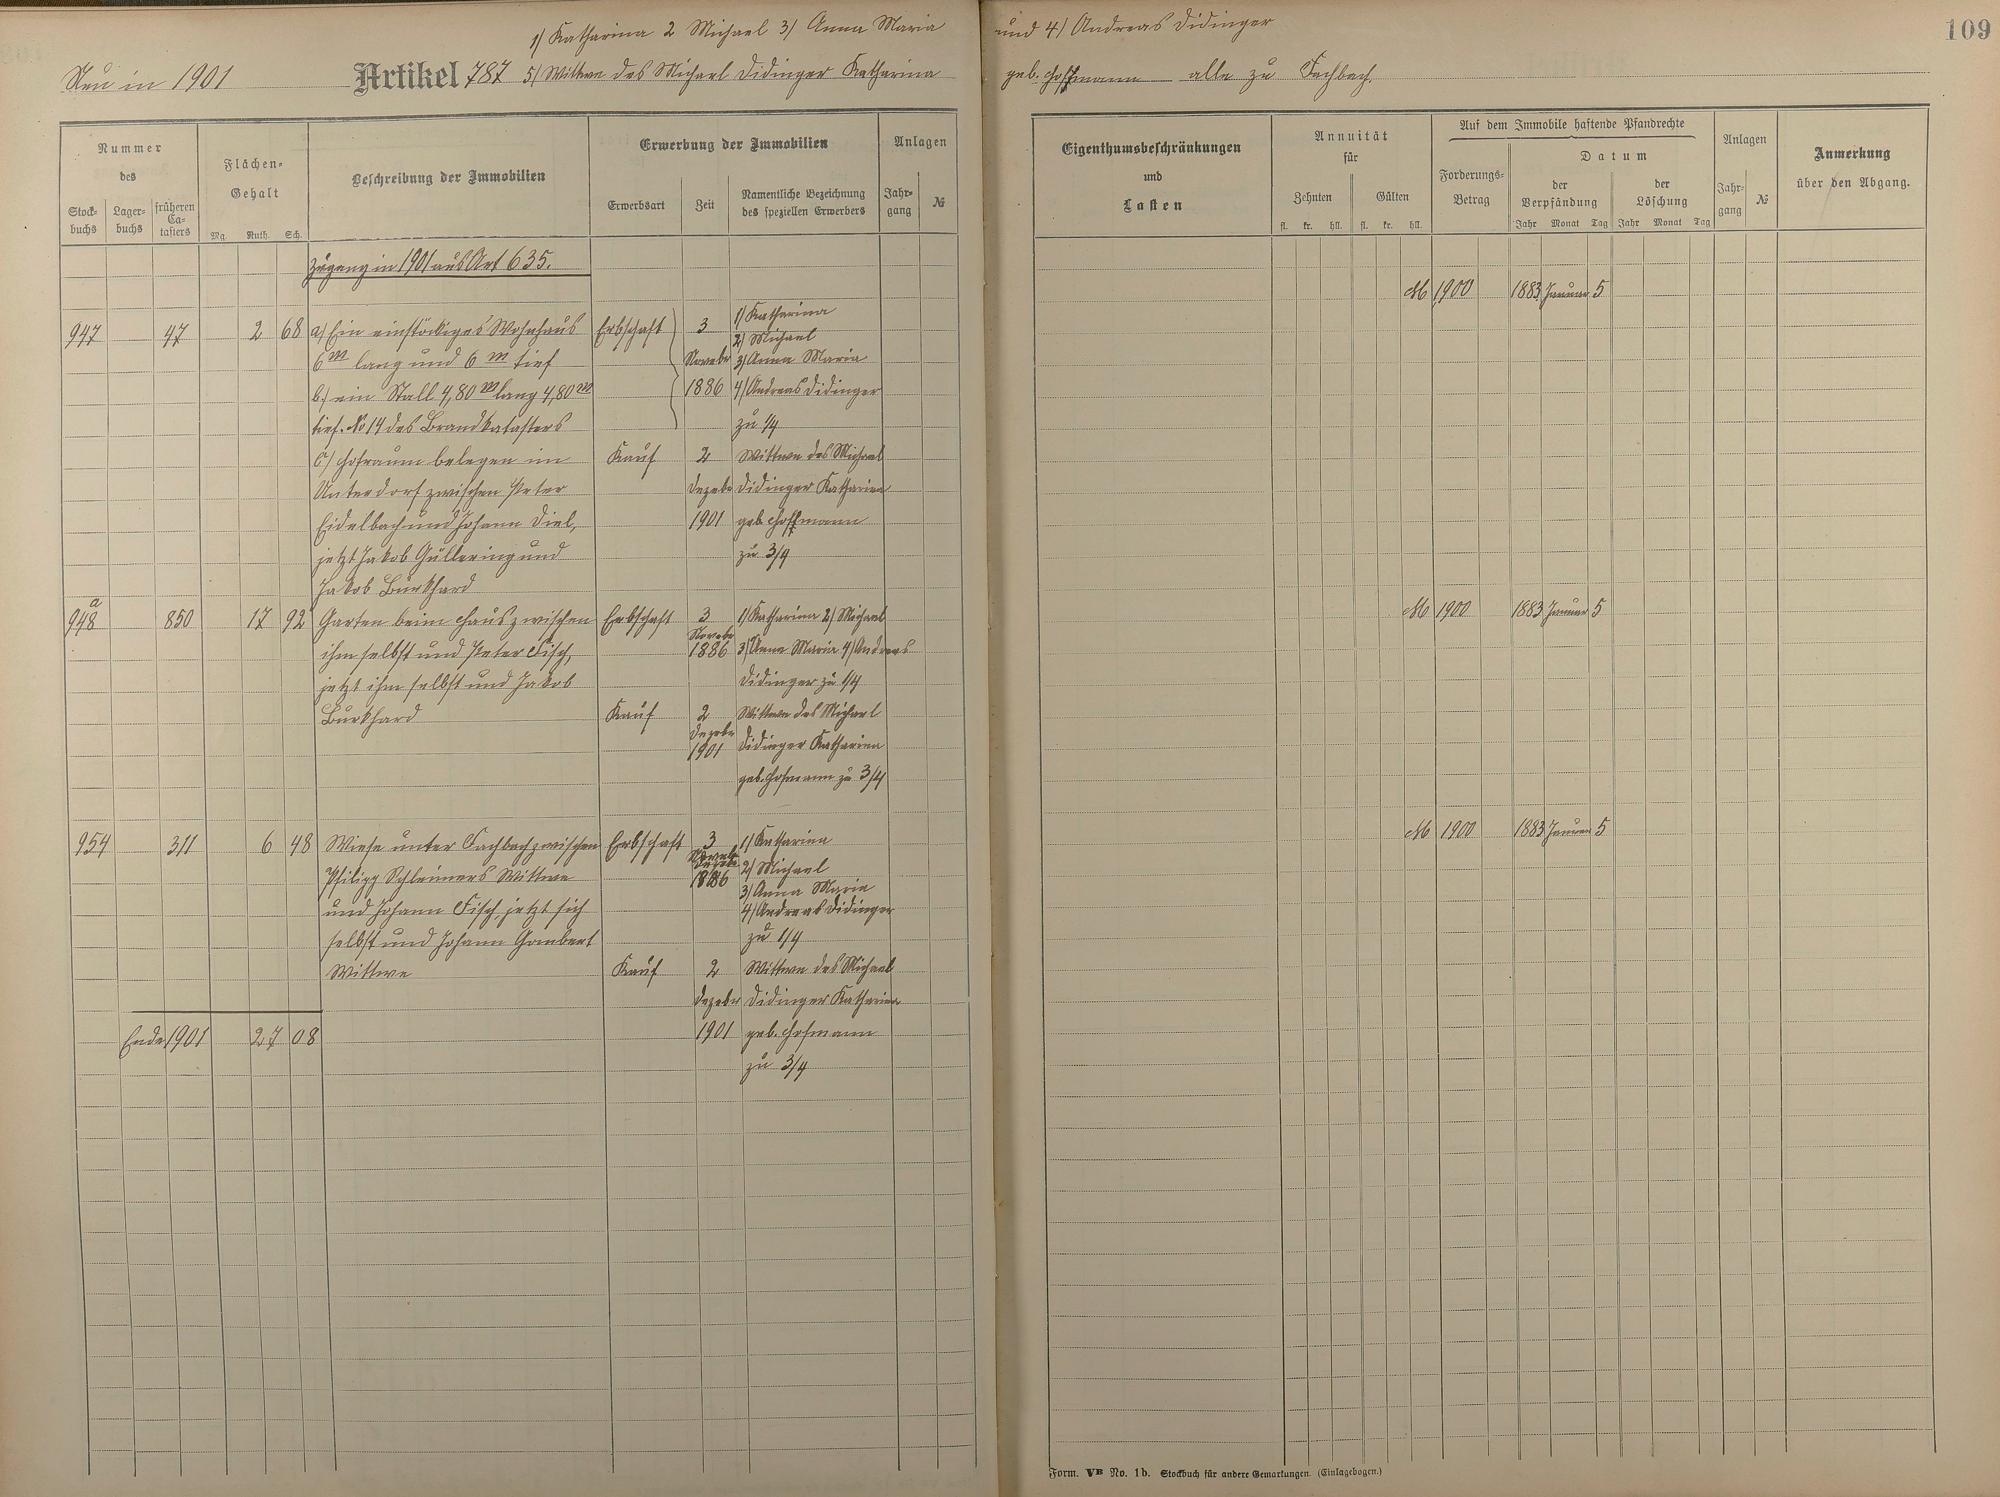 109
1) Katharina 2 Michael 3) Anna Maria und 4) Andreas Didinger
Neu in 1901 Artikel 787 5) Wittwe des Michael Didinger Katharina geb. Hoffmann alle zu Fachbach.
Nummer
des
Stock-
buchs
Lager-
buchs
früheren
Ca-
tasters
Flächen-
Gehalt
Mg. Ruth. Sch.
Beschreibung der Immobilien
Erwerbung der Immobilien
Erwerbsart
Zeit
Namentliche Bezeichnung
des speziellen Erwerbers
Anlagen
Jahr-
gang
№
Eigenthumsbeschränkungen
und
Lasten
Annuität
für
Zehnten
Gülten
fl. kr. hll. fl. kr. hll.
Auf dem Immobile haftende Pfandrechte
Forderungs-
Betrag
Datum
der
Verpfändung
der
Löschung
Jahr Monat Tag Jahr Monat Tag
Anlagen
Jahr-
gang
№
Anmerkung
über den Abgang.
Zugang in 1901 aus Art 635.
947 47 2 68
a) Ein einstöckiges Wohnhaus
6 m lang und 6 m tief
b) ein Stall 4,80 m lang 4,80 m
tief. No 14 des Brandkatasters
c) Hofraum belegen im
Unterdorf zwischen Peter
Eidelbach und Johann Diel,
jetzt Jakob Gülleringund
Jakob Burkhard
Erbschaft
3
Novebr
1886
1) Katharina
2) Michael
3) Anna Maria
4) Andreas Didinger
zu 1/4
Kauf
2
Dezebr
1901
Wittwe des Michael
Didinger Katharina
geb. Hoffmann
zu 3/4
M 1900 1883 Januar 5
948 a 850 17 92
Garten beim Haus zwischen
ihm selbst und Peter Fisch,
jetzt ihm selbst und Jakob
Burkhard
Erbschaft
3
Novebr
1886
1) Katharina 2) Michael
3) Anna Maria 4) Andreas
Didinger zu 1/4
Kauf
2
Dezebr
1901
Wittwe des Michael
Didinger Katharina
geb. Hofmann zu 3/4
M 1900 1883 Januar 5
954 311 6 48
Wiese unter Fachbach zwischen
Philipp Schleimers Wittwe
und Johann Fisch, jetzt sich
selbst und Johann Gombert
Wittwe
Erbschaft
3
1886
1) Katharina
2) Michael
3) Anna Maria
4) Andreas Didinger
zu 1/4
Kauf
2
Dezebr
1901
Wittwe des Michael
Didinger Katharina
geb. Hofmann
zu 3/4
M 1900 1883 Januar 5
Ende 1901 27 08
Form. VB No. 1b. Stockbuch für andere Gemarkungen. (Einlagebogen.)